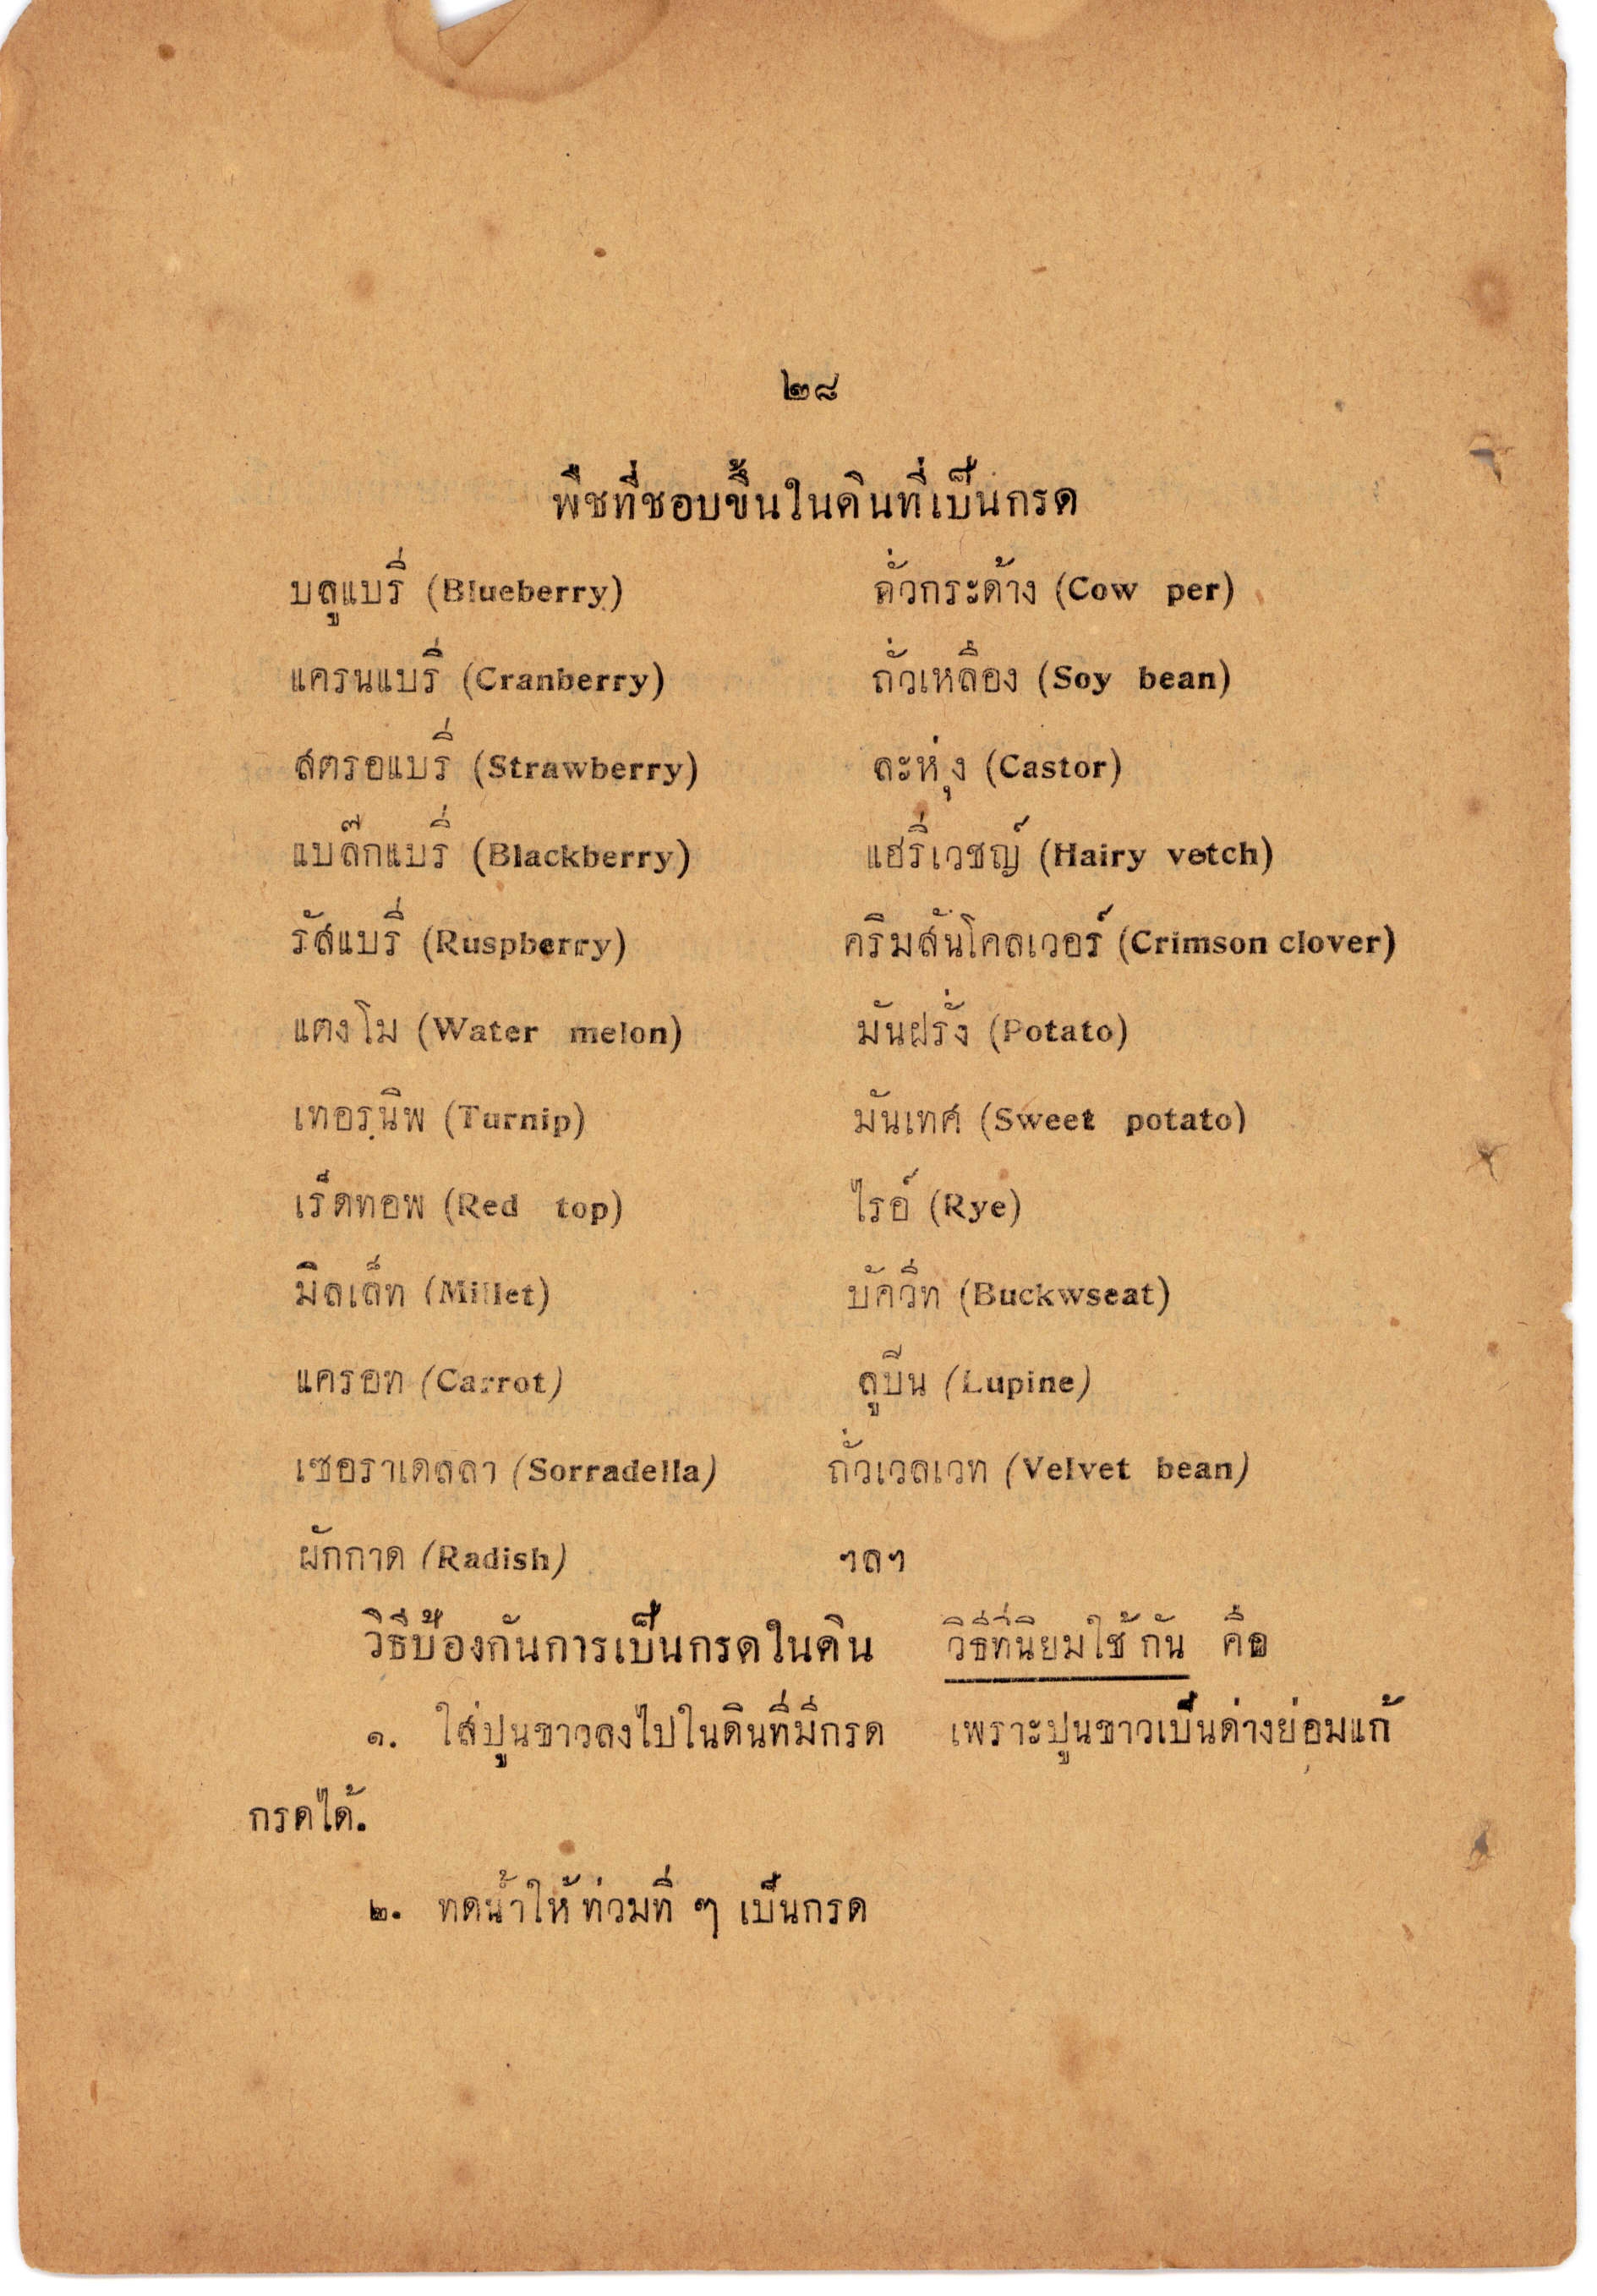 ๒๘
พืชที่ชอบขึ้นในดินที่เป็นกรด
บลูแบรี่ (Blueberry) ถั่วกระด้าง (Cow per)
แครนแบรี่ (Cranberry) ถั่วเหลือง (Soy bean)
สตรอแบรี่ (Strawberry) ละหุ่ง (Castor)
แบล๊กแบรี่ (Blackberry) แฮรี่เวชญ์ (Hairy vetch)
รัสแบรี่ (Ruspberry) คริมสันโคลเวอร์ (Crimson clover)
แตงโม (Water melon) มันฝรั่ง (Potato)
เทอรฺนิพ (Turnip) มันเทศ (Sweet potato)
เร็ดทอพ (Red top) ไรย์ (Rye)
มิลเล็ท (Millet) บัควีท (Buckwseat)
แครอท (Carrot) ลูปีน (Lupine)
เซอราเดลลา (Sorradella) ถั่วเวลเวท (Velvet bean)
ผักกาด (Radish) ฯลฯ
วิธีป้องกันการเป็นกรดในดิน วิธีที่นิยมใช้กัน คือ
๑. ใส่ปูนขาวลงไปในดินที่มีกรด เพราะปูนขาวเป็นด่างย่อมแก้
กรดได้.
๒. ทดน้ำให้ท่วมที่ ๆ เป็นกรด